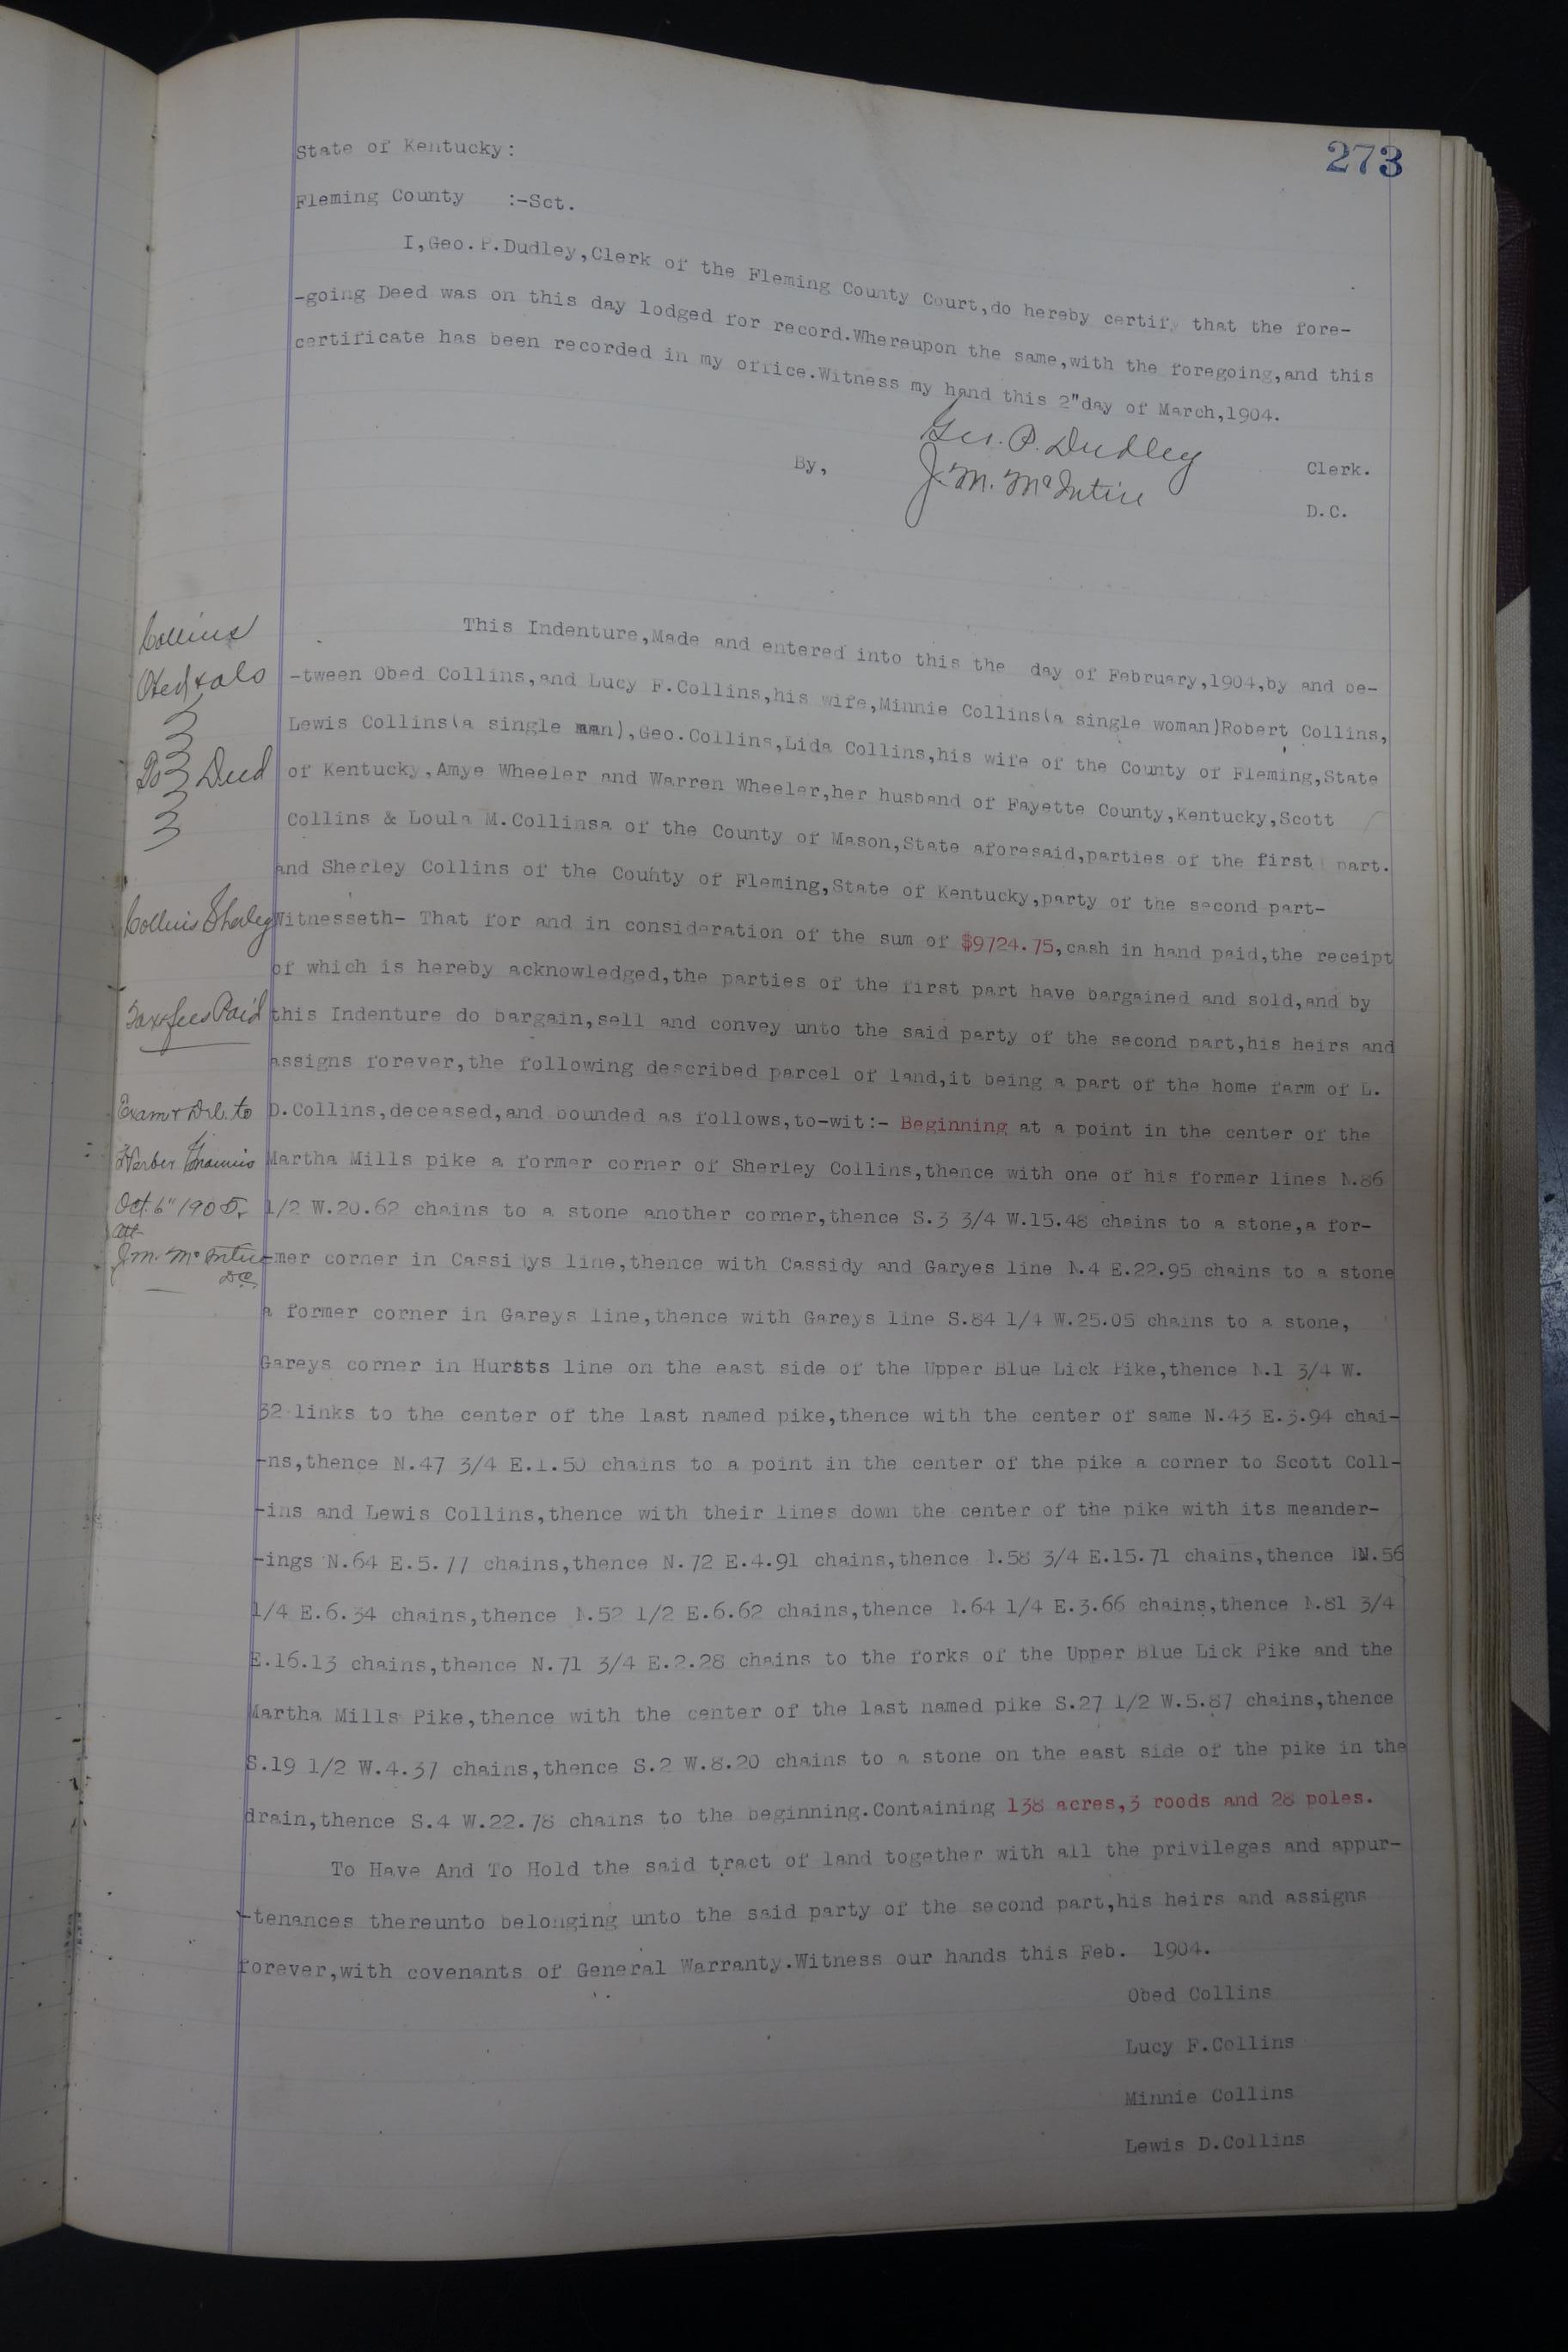 273
State of Kentucky:
Fleming County :-Sct.
I,Geo.P.Dudley,Clerk of the Fleming County Court,do hereby certify that the fore-
-going Deed was on this day lodged for record.Whereupon the same,with the foregoing,and this
certificate has been recorded in my office.Witness my hand this 2"day of March,1904.
Geo. P. Dudley Clerk.
By, J. M. McIntire
D.C.
Collins
Obed & als
To Deed
Collins Sherley
Tax & fees Paid
Exam & Del. to
Oct. 6" 1905.
Att
J.M. McIntire
D.C.
This Indenture,Made and entered into this the day of February,1904,by and be-
-tween Obed Collins,and Lucy F.Collins,his wife,Minnie Collins(a single woman)Robert Collins,
Lewis Collins(a single man),Geo.Collins,Lida Collins,his wife of the County of Fleming,State
of Kentucky,Amye Wheeler and Warren Wheeler,her husband of Fayette County,Kentucky,Scott
Collins & Loula M.Collinsa of the County of Mason,State aforesaid,parties of the first part.
and Sherley Collins of the County of Fleming,State of Kentucky,party of the second part-
Witnesseth- That for and in consideration of the sum of $9724.75,cash in hand paid,the receipt
of which is hereby acknowledged,the parties of the first part have bargained and sold,and by
this Indenture do bargain,sell and convey unto the said party of the second part,his heirs and
assigns forever,the following described parcel of land,it being a part of the home farm of L.
D.Collins,deceased,and bounded as follows,to-wit:- Beginning at a point in the center of the
Martha Mills pike a former corner of Sherley Collins,thence with one of his former lines N.86
1/2 W.20.62 chains to a stone another corner,thence S.3 3/4 W.15.48 chains to a stone,a for-
-mer corner in Cassidys line,thence with Cassidy and Garyes line N.4 E.22.95 chains to a stone
a former corner in Gareys line,thence with Gareys line S.84 1/4 W.25.05 chains to a stone,
Gareys corner in Hursts line on the east side of the Upper Blue Lick Pike,thence N.1 3/4 W.
32 links to the center of the last named pike,thence with the center of same N.43 E.3.94 chai-
-ns,thence N.47 3/4 E.1.50 chains to a point in the center of the pike a corner to Scott Coll-
-ins and Lewis Collins,thence with their lines down the center of the pike with its meander-
-ings N.64 E.5.77 chains,thence N.72 E.4.91 chains,thence N.58 3/4 E.15.71 chains,thence N.56
1/4 E.6.34 chains,thence N.52 1/2 E.6.62 chains,thence N.64 1/4 E.3.66 chains,thence N.81 3/4
E.16.13 chains,thence N.71 3/4 E.2.28 chains to the forks of the Upper Blue Lick Pike and the
Martha Mills Pike,thence with the center of the last named pike S.27 1/2 W.5.87 chains,thence
S.19 1/2 W.4.37 chains,thence S.2 W.8.20 chains to a stone on the east side of the pike in the
drain,thence S.4 W.22.78 chains to the beginning.Containing 138 acres,3 roods and 28 poles.
To Have And To Hold the said tract of land together with all the privileges and appur-
-tenances thereunto belonging unto the said party of the second part,his heirs and assigns
forever,with covenants of General Warranty.Witness our hands this Feb. 1904.
Obed Collins
Lucy F.Collins
Minnie Collins
Lewis D.Collins